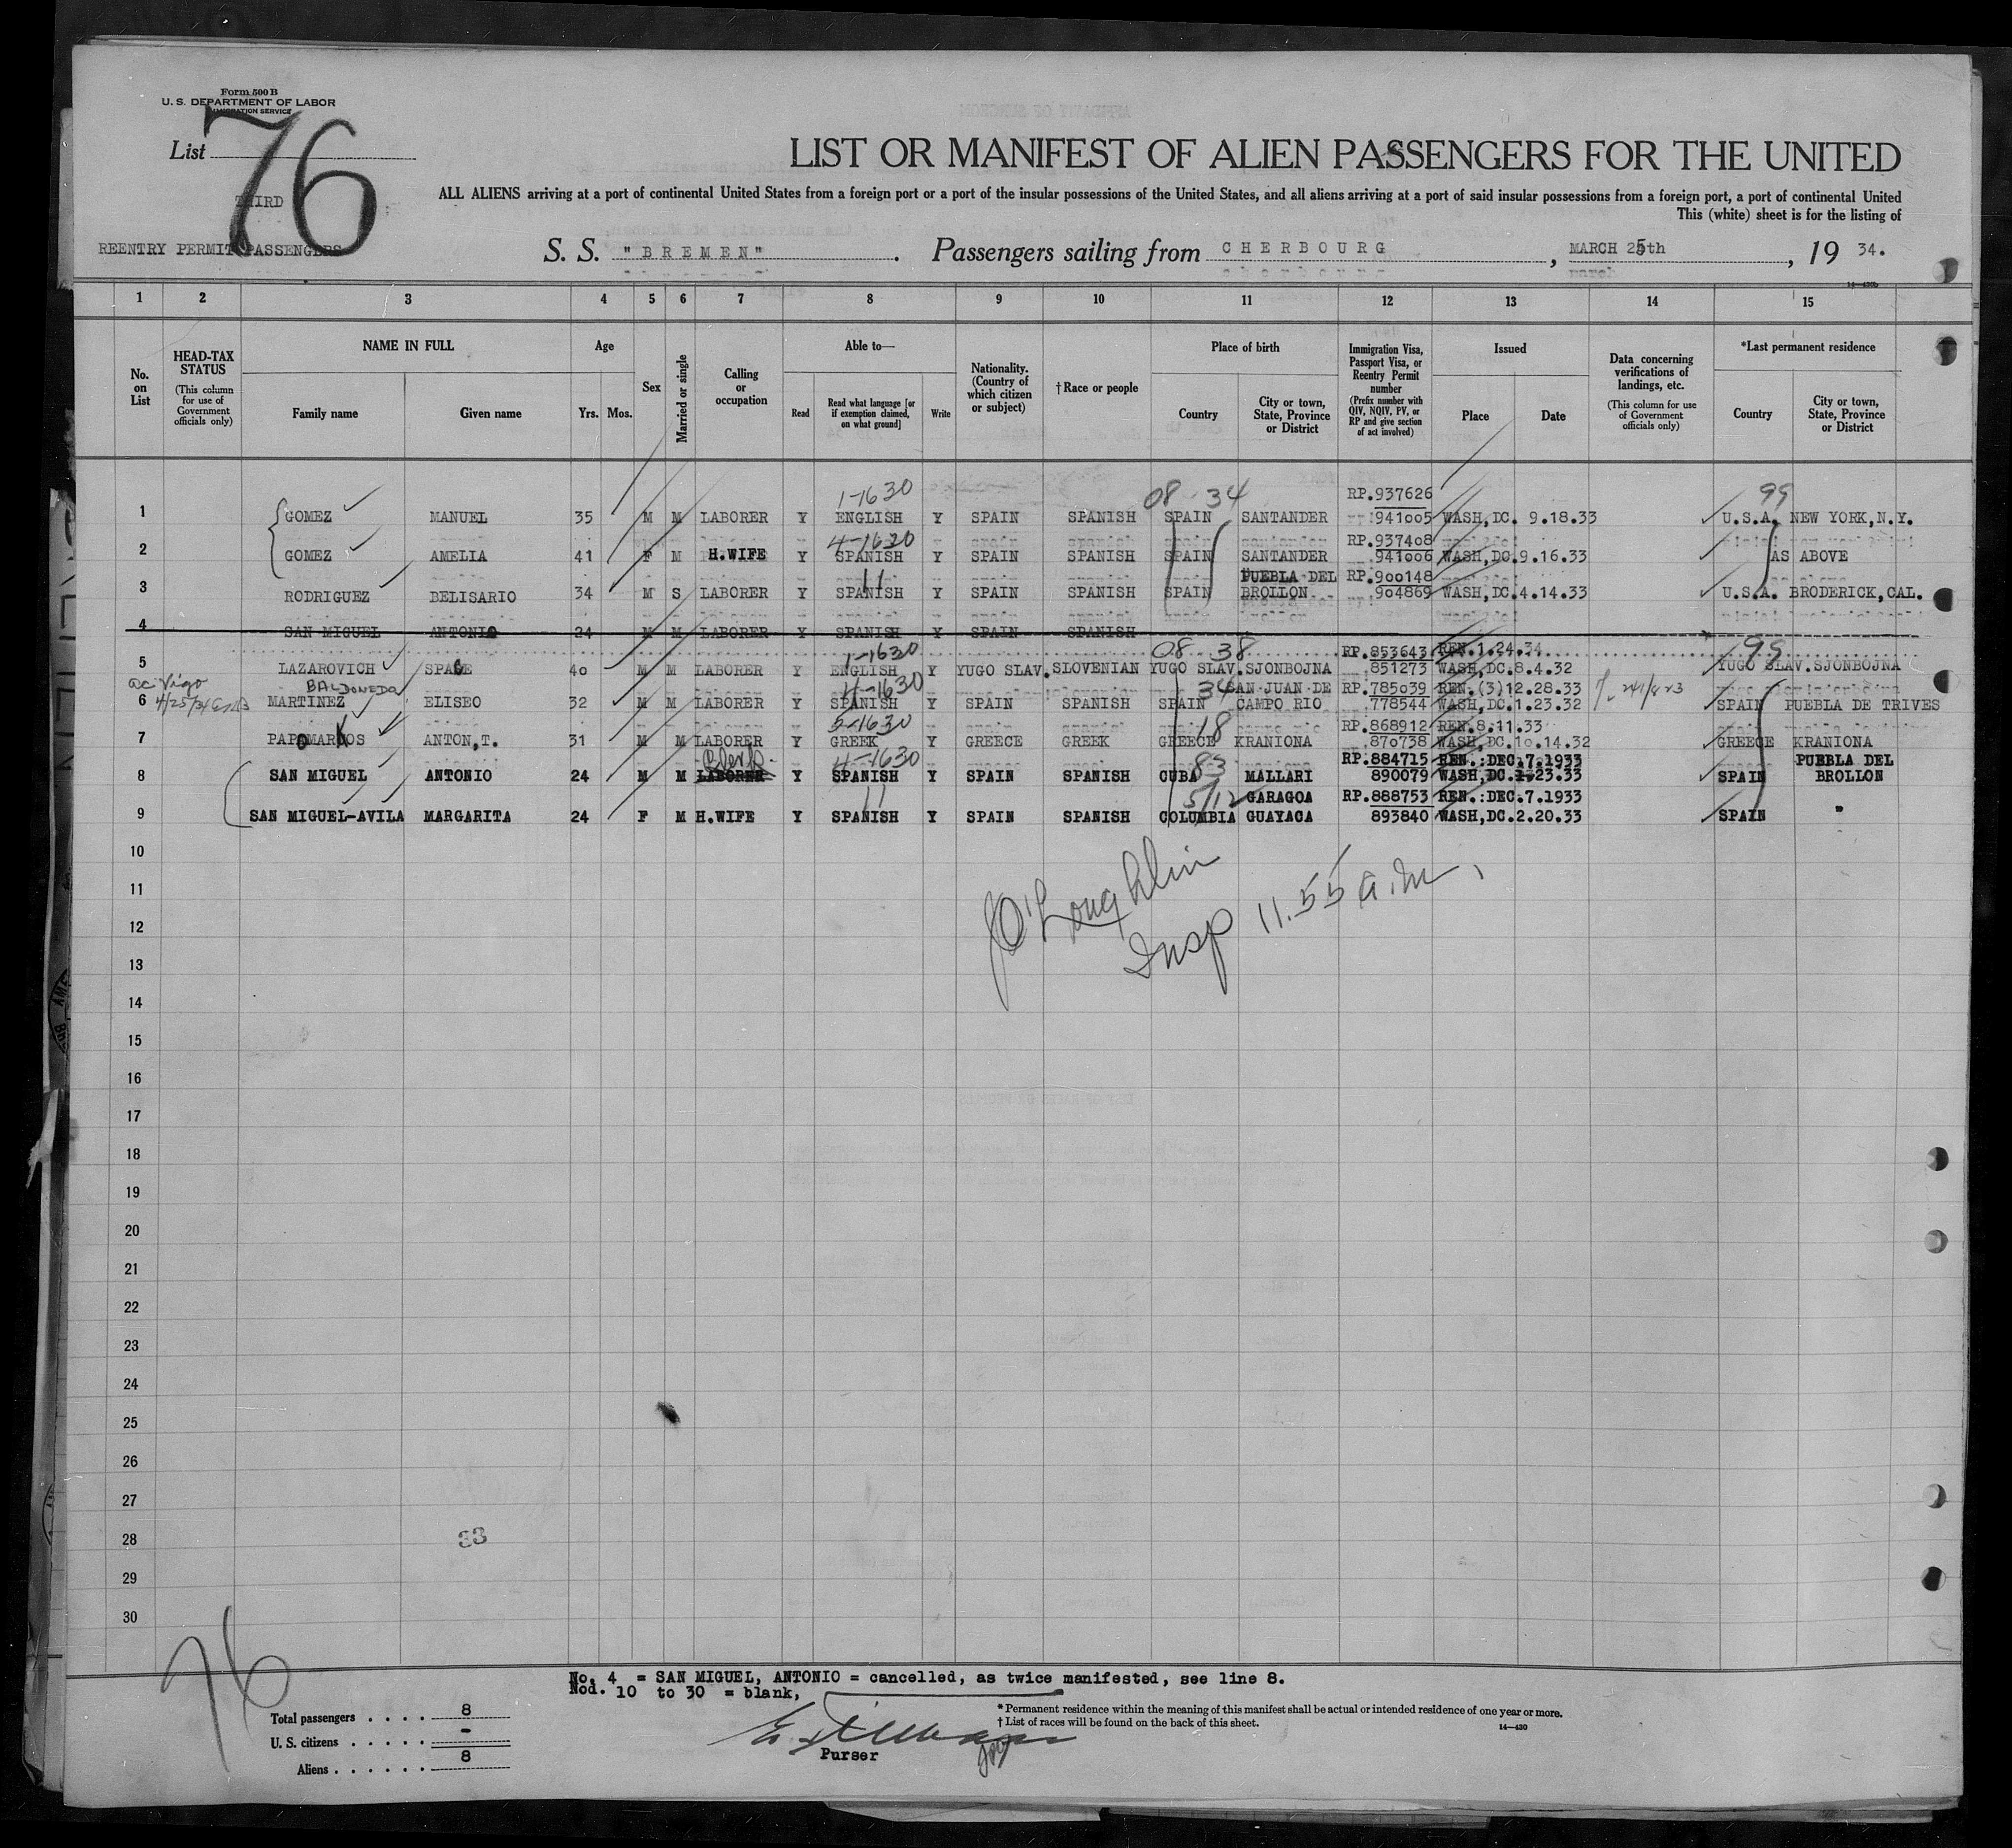 Form 500 B
U. S. DEPARTMENT OF LABOR
IMMIGRATION SERVICE
List 76
THIRD
REENTRY PERMIT PASSENGERS
LIST OR MANIFEST OF ALIEN PASSENGERS FOR THE UNITED
ALL ALIENS arriving at a port of continental United States from a foreign port or a port of the insular possessions of the United States, and all aliens arriving at a port of said insular possessions from a foreign port, a port of continental United
This (white) sheet is for the listing of
S. S. "BREMEN". Passengers sailing from CHERBOURG, MARCH 25th, 19 34.
14—430b
1 2 3 4 5 6 7 8 9 10 11 12 13 14 15
No. on List
HEAD-TAX STATUS (This column for use of Government officials only)
NAME IN FULL Family name Given name
Age Yrs. Mos.
Sex
Married or single
Calling or occupation
Able to— Read Read what language [or if exemption claimed, on what ground] Write
Nationality. (Country of which citizen or subject)
†Race or people
Place of birth Country City or town, State, Province or District
Immigration Visa, Passport Visa, or Reentry Permit number (Prefix number with QIV, NQIV, PV, or RP and give section of act involved)
Issued Place Date
Data concerning verifications of landings, etc. (This column for use of Government officials only)
*Last permanent residence Country City or town, State, Province or District
1-1630 08 34 RP.937626 99
1 GOMEZ MANUEL 35 M M LABORER Y ENGLISH Y SPAIN SPANISH SPAIN SANTANDER 941005 WASH,DC. 9.18.33 U.S.A. NEW YORK,N.Y.
4-1630 RP.937408
2 GOMEZ AMELIA 41 F M H.WIFE Y SPANISH Y SPAIN SPANISH SPAIN SANTANDER 941006 WASH,DC.9.16.33 AS ABOVE
11 PUEBLA DEL RP.900148
3 RODRIGUEZ BELISARIO 34 M S LABORER Y SPANISH Y SPAIN SPANISH SPAIN BROLLON 904869 WASH,DC.4.14.33 U.S.A. BRODERICK,CAL.
4 SAN MIGUEL ANTONIO 24 M M LABORER Y SPANISH Y SPAIN SPANISH
1-1630 08 38 RP.853643 REN.1.24.34 99
5 LAZAROVICH 40 M M LABORER Y ENGLISH Y YUGO SLAV. SLOVENIAN YUGO SLAV. SJONBOJNA 851273 WASH,DC.8.4.32 YUGO SLAV. SJONBOJNA
ac. Vigo BALDONEDO 4-1630 34 SAN JUAN DE RP.785039 REN.(3)12.28.33
6 4/25/34 MARTINEZ ELISEO 32 M M LABORER Y SPANISH Y SPAIN SPANISH SPAIN CAMPO RIO 778544 WASH,DC.1.23.32 SPAIN PUEBLA DE TRIVES
5-1630 18 RP.868912 REN.8.11.33
7 PAPOMARKOS ANTON,T. 31 M M LABORER Y GREEK Y GREECE GREEK GREECE KRANIONA 870738 WASH,DC.10.14.32 GREECE KRANIONA
Clerk 4-1630 83 RP.884715 REN.:DEC.7.1933 PUEBLA DEL
8 SAN MIGUEL ANTONIO 24 M M LABORER Y SPANISH Y SPAIN SPANISH CUBA MALLARI 890079 WASH,DC.1.23.33 SPAIN BROLLON
11 5/12 GARAGOA RP.888753 REN.:DEC.7.1933
9 SAN MIGUEL-AVILA MARGARITA 24 F M H.WIFE Y SPANISH Y SPAIN SPANISH COLUMBIA GUAYACA 893840 WASH,DC.2.20.33 SPAIN "
10
11
JO'Loughlin
12
Insp 11.55 a.m.
13
14
15
16
17
18
19
20
21
22
23
24
25
26
27
28 33
29
30
76
No. 4 = SAN MIGUEL, ANTONIO = cancelled, as twice manifested, see line 8.
Nod. 10 to 30 = blank,
Total passengers . . . . 8
U. S. citizens . . . . . -
Aliens . . . . . . 8
Purser
*Permanent residence within the meaning of this manifest shall be actual or intended residence of one year or more.
† List of races will be found on the back of this sheet.
14—430